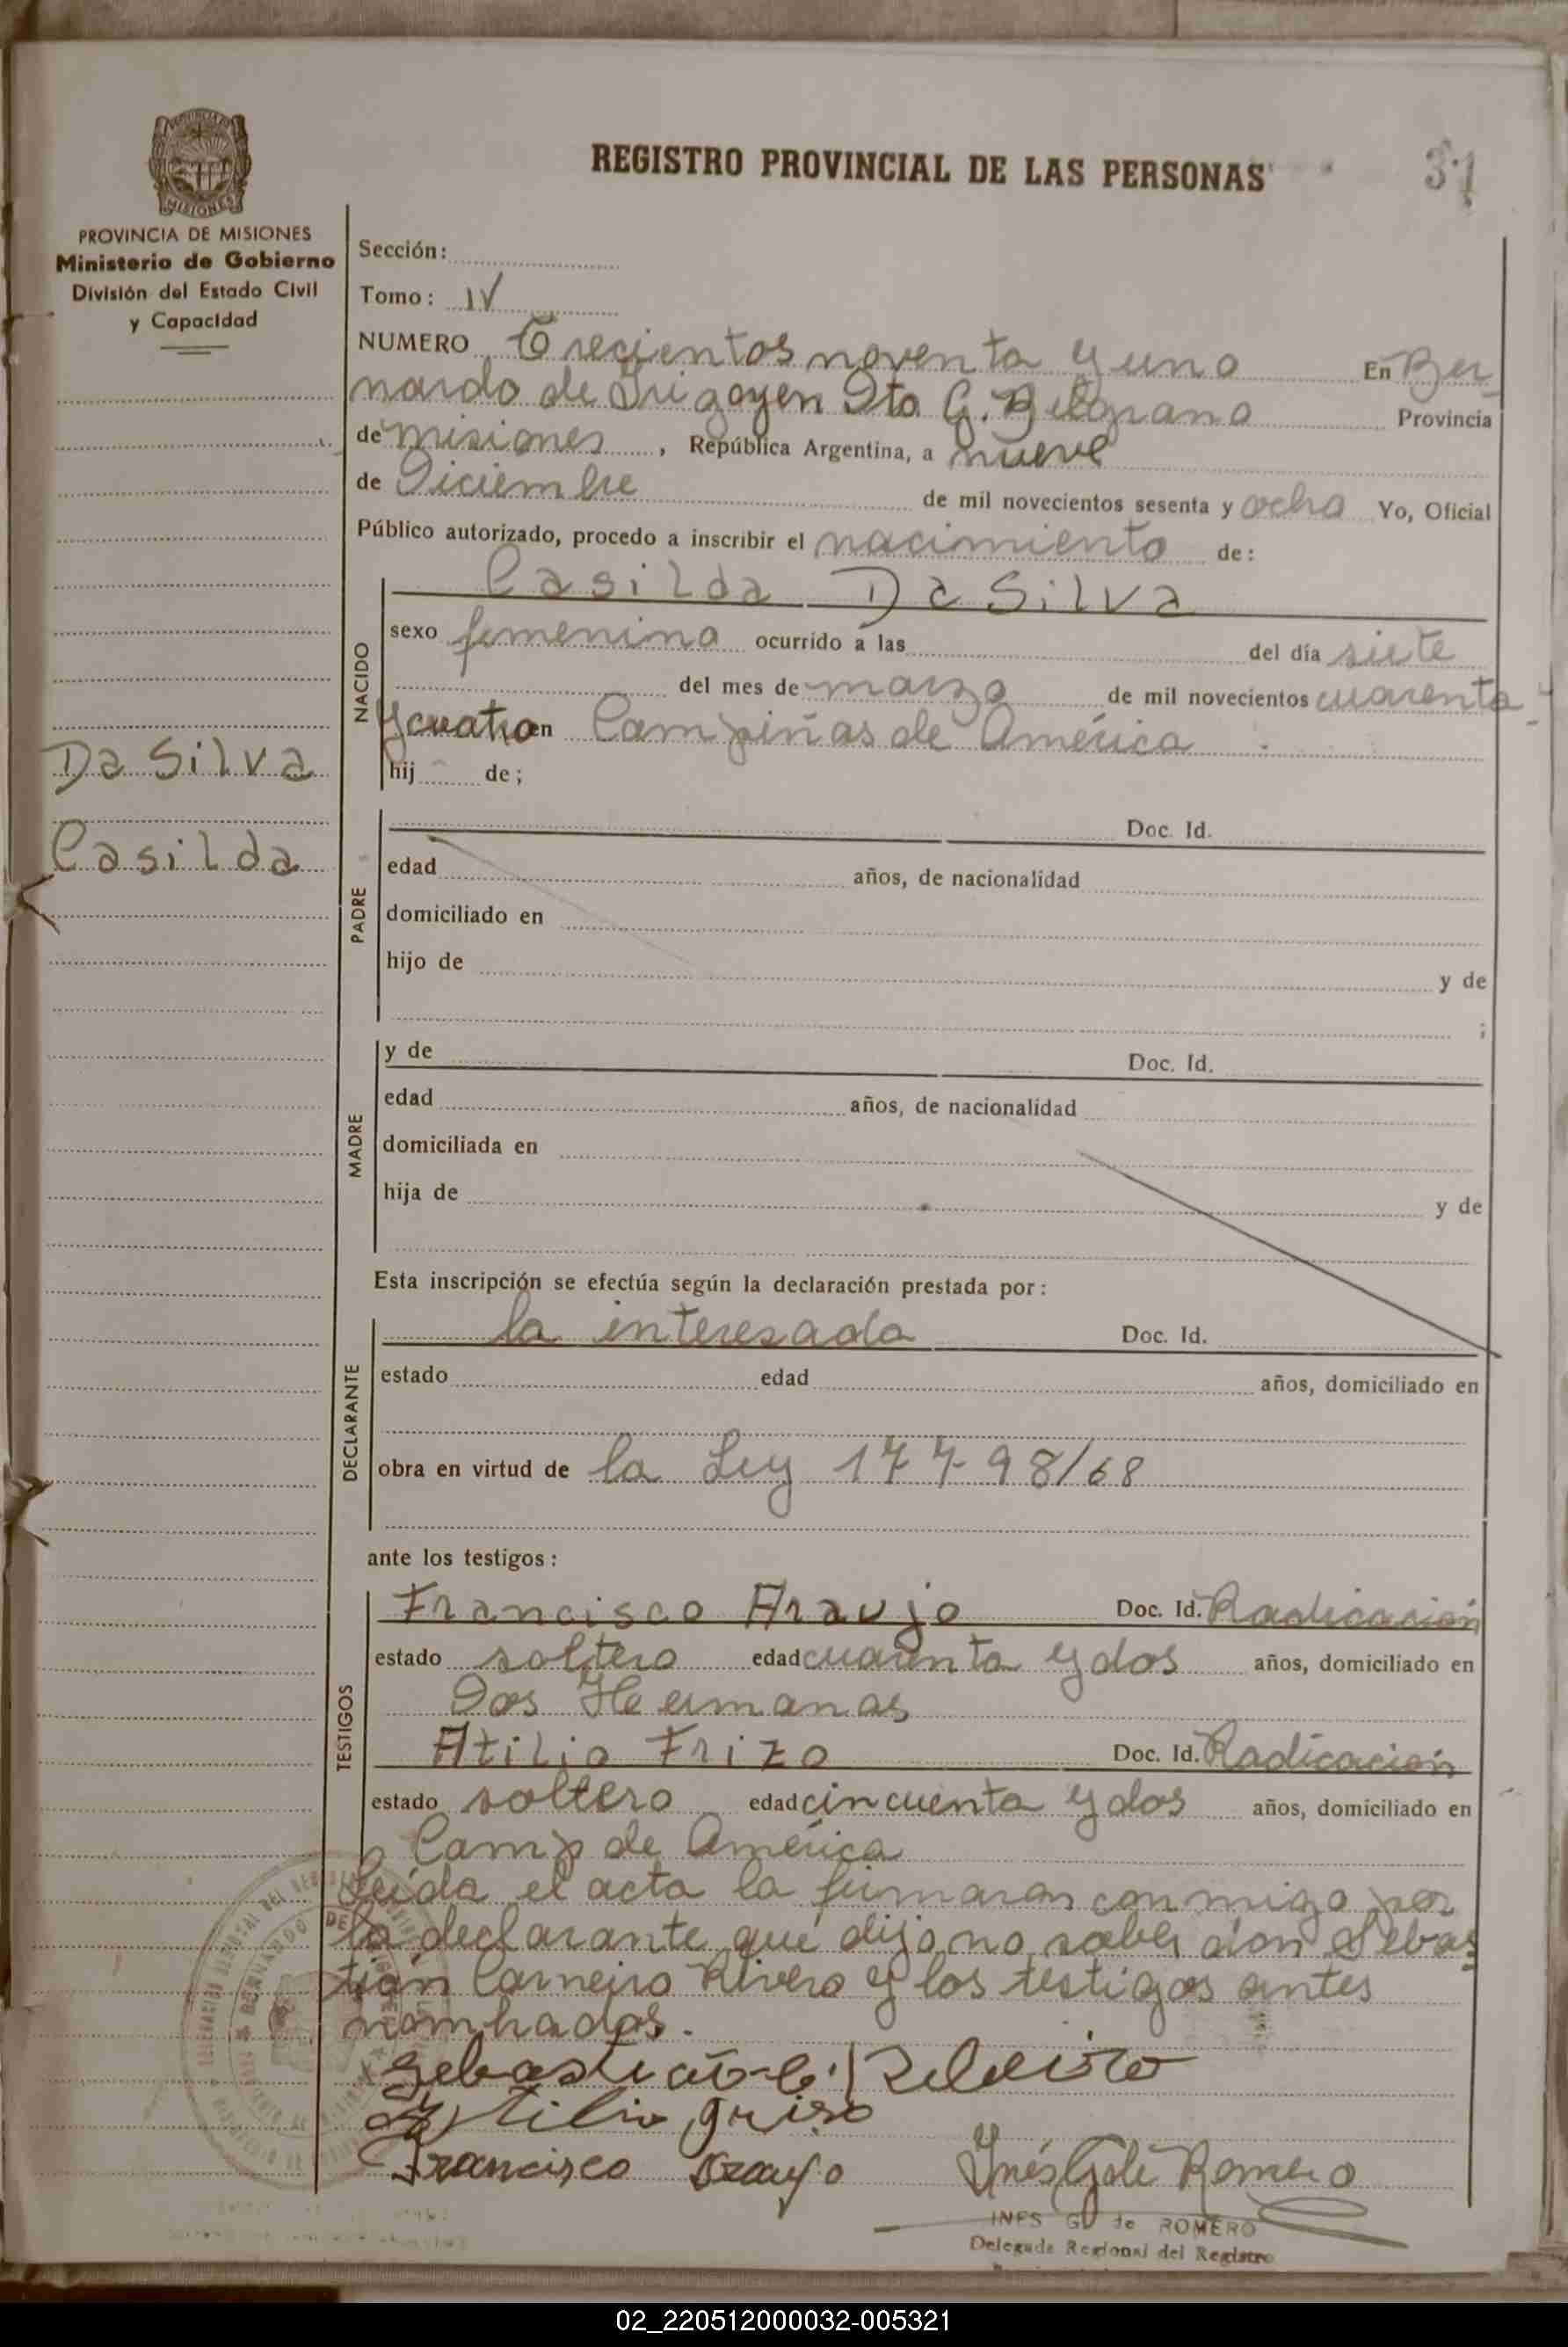 REGISTRO PROVINCIAL DE LAS PERSONAS
31
PROVINCIA DE MISIONES
Ministerio de Gobierno
División del Estado Civil
y Capacidad
Sección:
Tomo: IV
NUMERO Trecientos noventa y uno En Ber
nardo de Irigoyen Dto G. Belgrano Provincia
de misiones, República Argentina, a nueve
de Diciembre de mil novecientos sesenta y ocho Yo, Oficial
Público autorizado, procedo a inscribir el nacimiento de:
Casilda Da Silva
NACIDO
sexo femenino ocurrido a las del día siete
del mes de marzo de mil novecientos cuarenta
y cuatro en Campiñas de América
hij de;
Da Silva
Casilda
PADRE
Doc. Id.
edad años, de nacionalidad
domiciliado en
hijo de y de
;
MADRE
y de Doc. Id.
edad años, de nacionalidad
domiciliada en
hija de y de
Esta inscripción se efectúa según la declaración prestada por:
DECLARANTE
la interesada Doc. Id.
estado edad años, domiciliado en
obra en virtud de la Ley 17798/68
ante los testigos:
TESTIGOS
Francisco Araujo Doc. Id. Radicación
estado soltero edad cuarenta y dos años, domiciliado en
Dos Hermanas
Atilio Frizo Doc. Id. Radicación
estado soltero edad cincuenta y dos años, domiciliado en
Camp de América
Leida el acta la firmaron conmigo por
la declarante que dijo no saber don Sebas
tián Carneiro Rivero y los testigos antes
nombrados.
Francisco Araujo
Inés G de Romero
INES G. de ROMERO
Delegada Regional del Registro
02_220512000032-005321